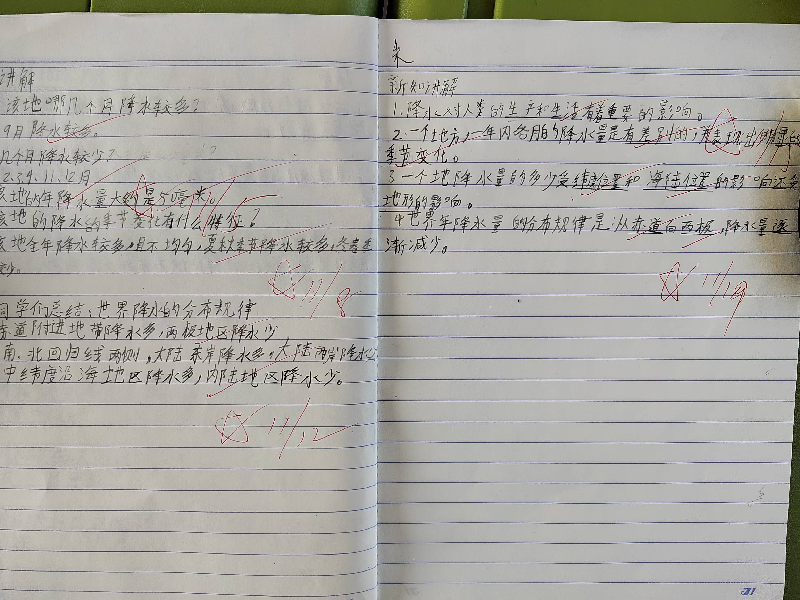 讲解
该地哪几个月降水较多?
9月降水较多。
几个月降水较少?
2.3.4.11.12月
该地的年降水量大约是
该地的降水的季节变化有什么特征?
该地全年降水较多,且不均匀,夏秋季节降水较多,冬春季
较少。
11/8
同学们总结:世界降水的分布规律
赤道附进地带降水多,两极地区降水少
南、北回归线两侧,大陆东岸降水多,大陆西岸降水少
中纬度沿海地区降水多,内陆地区降水少。
11/12
新知讲解
1.降水对人类的生产和生活有着重要的影响。
2.一个地方,一年内各月的降水量是有差别的,表现出明显的
季节变化。
3.一个地降水量的多少受纬度位置和海陆位置的影响还受
地形的影响。
4.世界年降水量的分布规律是:从赤道向两极,降水量逐
渐减少。
11/19